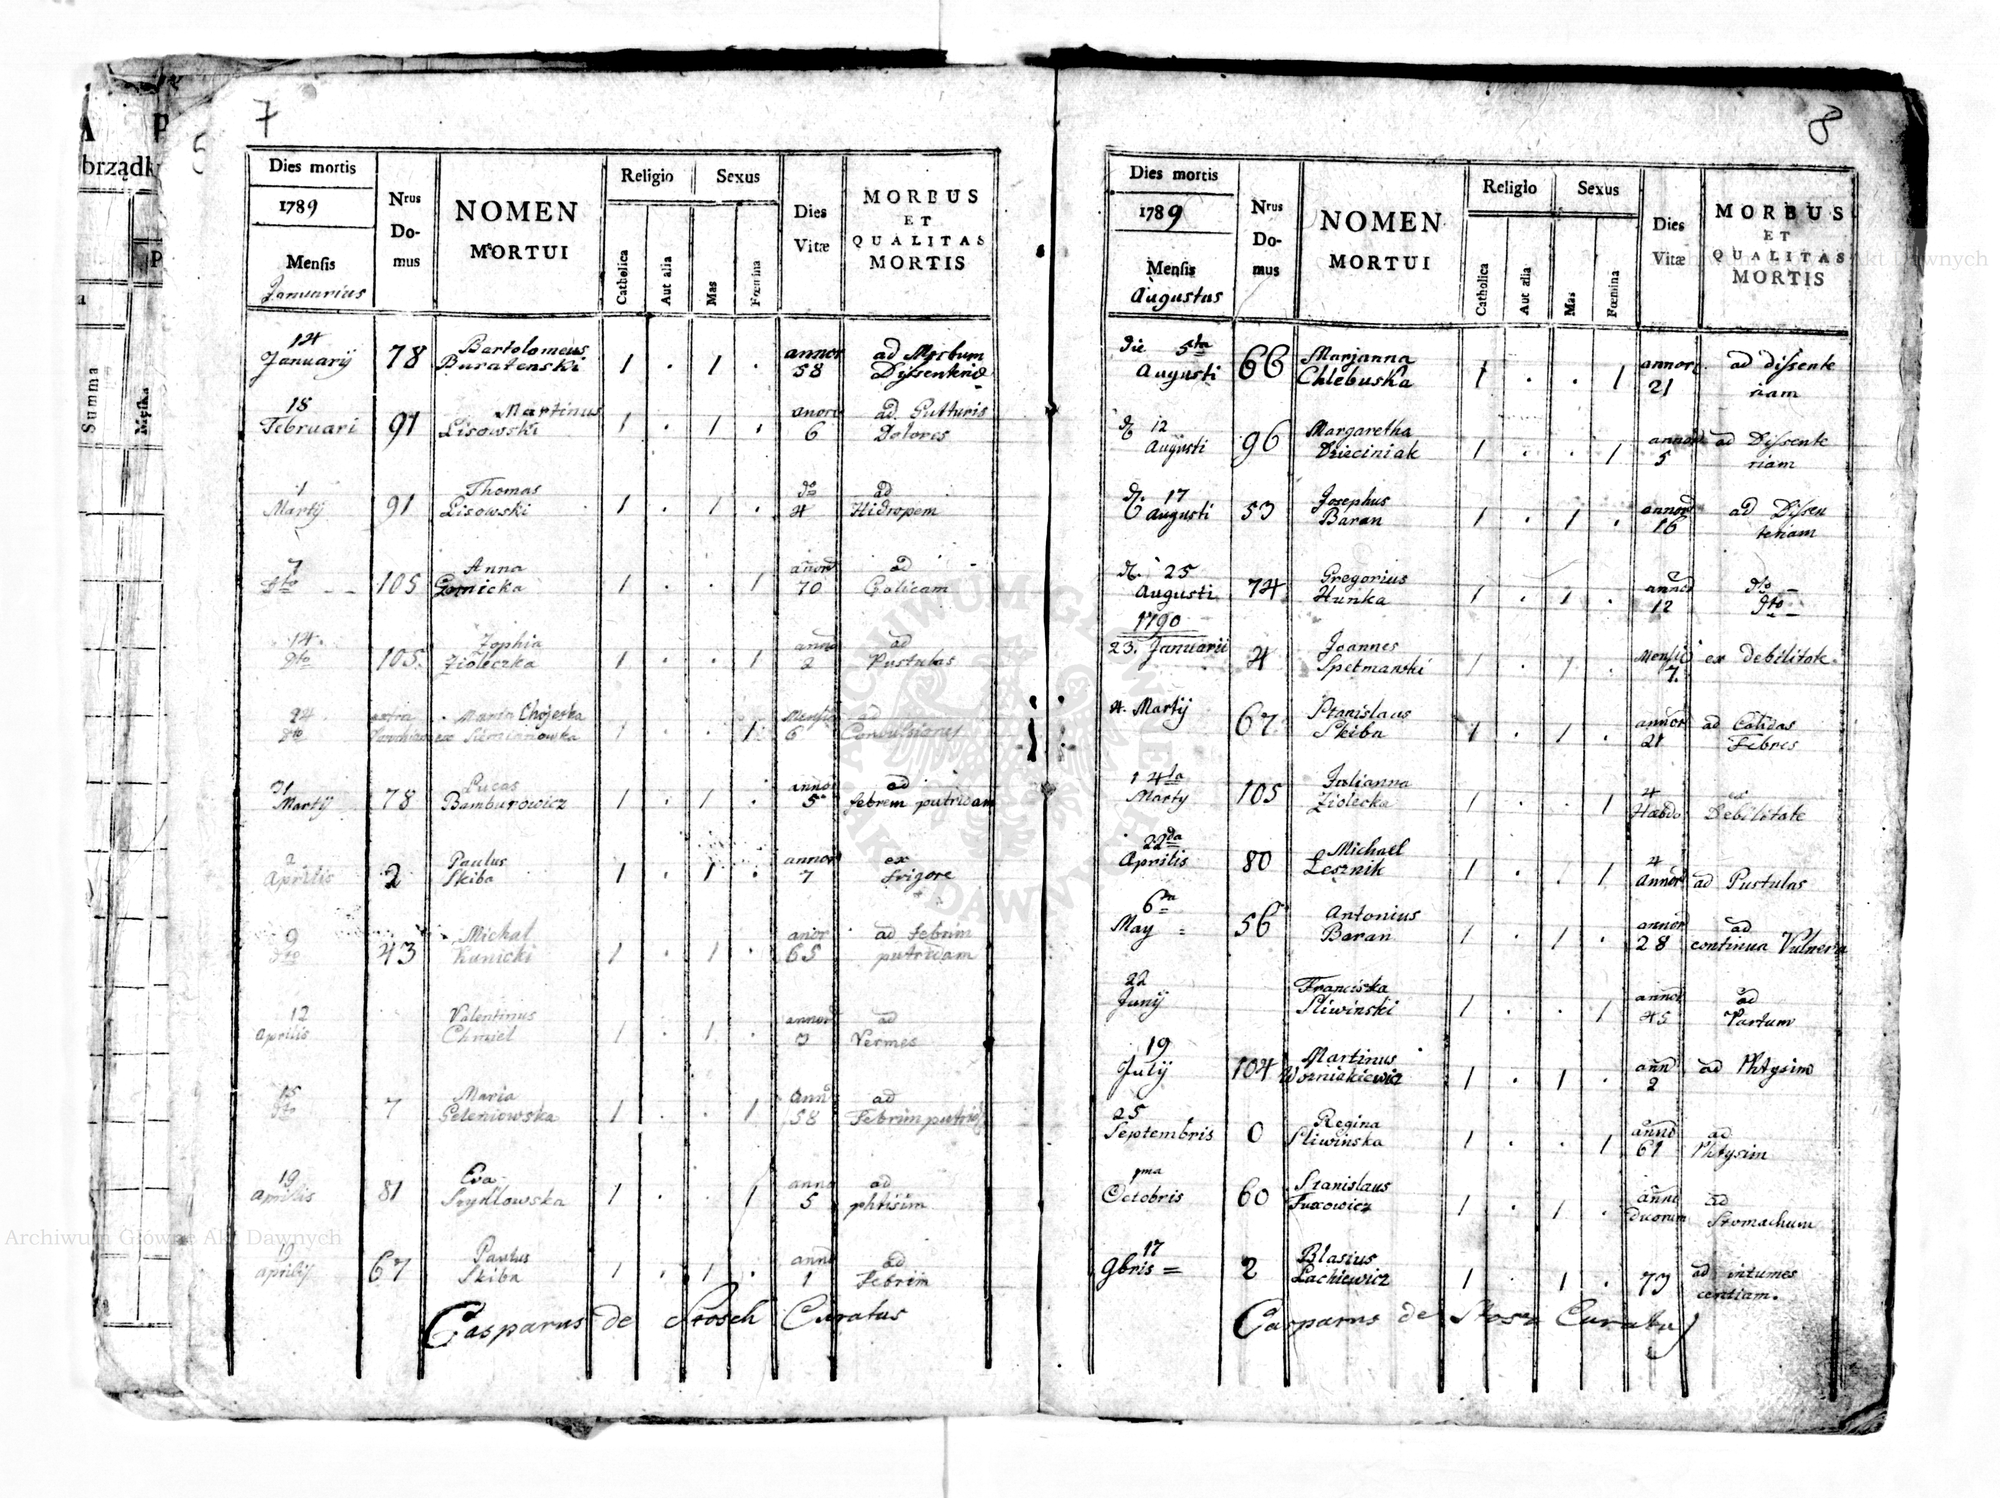 7
Dies mortis
1789
Mensis
Januarius
Nrus Do-mus
NOMEN
MORTUI
Religio
Sexus
Catholica
Aut alia
Mas
Fœmina
Dies
Vitæ
MORBUS
ET
QUALITAS
MORTIS
14 Bartolomeus annor ad Morbum
Januarij 78 Buratenski 1 . 1 . 58 Dissenteriæ
18 Martinus anor ad Gutturis
Februari 91 Lisowski 1 . 1 . 6 Dolores
1 Thomas do ad
Martij 91 Lisowski 1 . 1 . 4 Hidropem
7 Anna annor ad
dto 105 Gornicka 1 . . 1 70 Colicam
14. Zophia annor ad
dto 105. Zioleczka 1 . . 1 2 Pustulas
24 extra Maria Chojecka Mensis ad
dto 1 . . 1 6 Convulsiones
31 Lucas annor ad
Martij 78 Bamburowicz 1 . 1 . 5 febrem putridam
2 Paulus annor ex
Aprilis 2 Skiba 1 . 1 . 7 frigore
9 Michal anor ad febrim
dto 43 Kunicki 1 . 1 . 65 putridam
12 Valentinus annor ad
Aprilis Chmiel 1 . 1 . 3 Vermes
15 Maria ann ad
dto 7 Geleniowska 1 . . 1 58 Febrim putrid
19 Eva anno ad
Aprilis 81 Szydlowska 1 . . 1 5 phtisim
19 Paulus anno ad
Aprilis 67 Skiba 1 . 1 . 1 Febrim
Casparus de Stosch Curatus
8
Dies mortis
1789
Mensis
Augustus
Nrus Do-mus
NOMEN
MORTUI
Religio
Sexus
Catholica
Aut alia
Mas
Fœmina
Dies
Vitæ
MORBUS
ET
QUALITAS
MORTIS
Die 5ta Marjanna annor ad dissente
Augusti 66 Chlebuska 1 . . 1 21 riam
d. 12 Margaretha annor ad Dissente
Augusti 96 Dzieciniak 1 . . 1 5 riam
d. 17 Josephus annor ad Dissen
Augusti 53 Baran 1 . 1 . 16 teriam
d. 25 Gregorius annor do
Augusti 74 Hunka 1 . 1 . 12 dto
1790
23. Januarii 4 Joannes Spetmanski 1 . 1 . Mensic 7. ex debilitate
4. Martij 67 Stanislaus Skiba 1 . 1 . annor 21 ad Calidas Febres
14ta Julianna 4 ex
Martij 105 Ziolecka 1 . . 1 Hæbdo Debilitate
22da Michael 4
Aprilis 80 Lesznik 1 . . 1 Annor ad Pustulas
6ta Antonius annor ad
May 56 Baran 1 . 1 . 28 continua Vulnera
22 Franciszka annor ad
Junij Sliwinski 1 . . 1 45 Partum
19 Martinus ann
July 104 Wozniakiewicz 1 . 1 . 2 ad Phtysim
25 Regina anno ad
Septembris 0 Sliwinska 1 . . 1 61 Phtysim
1ma Stanislaus anno ad
Octobris 60 Fuxowicz 1 . 1 . duorum Stomachum
17 Blasius ad intumes
9bris = 2 Lachiewicz 1 . 1 . 73 centiam.
Casparus de Stosz Curatus
brządk
Summa
Archiwum Główne Akt Dawnych
Archiwum Główne Akt Dawnych
ARCHIWUM GŁÓWNE AKT DAWNYCH